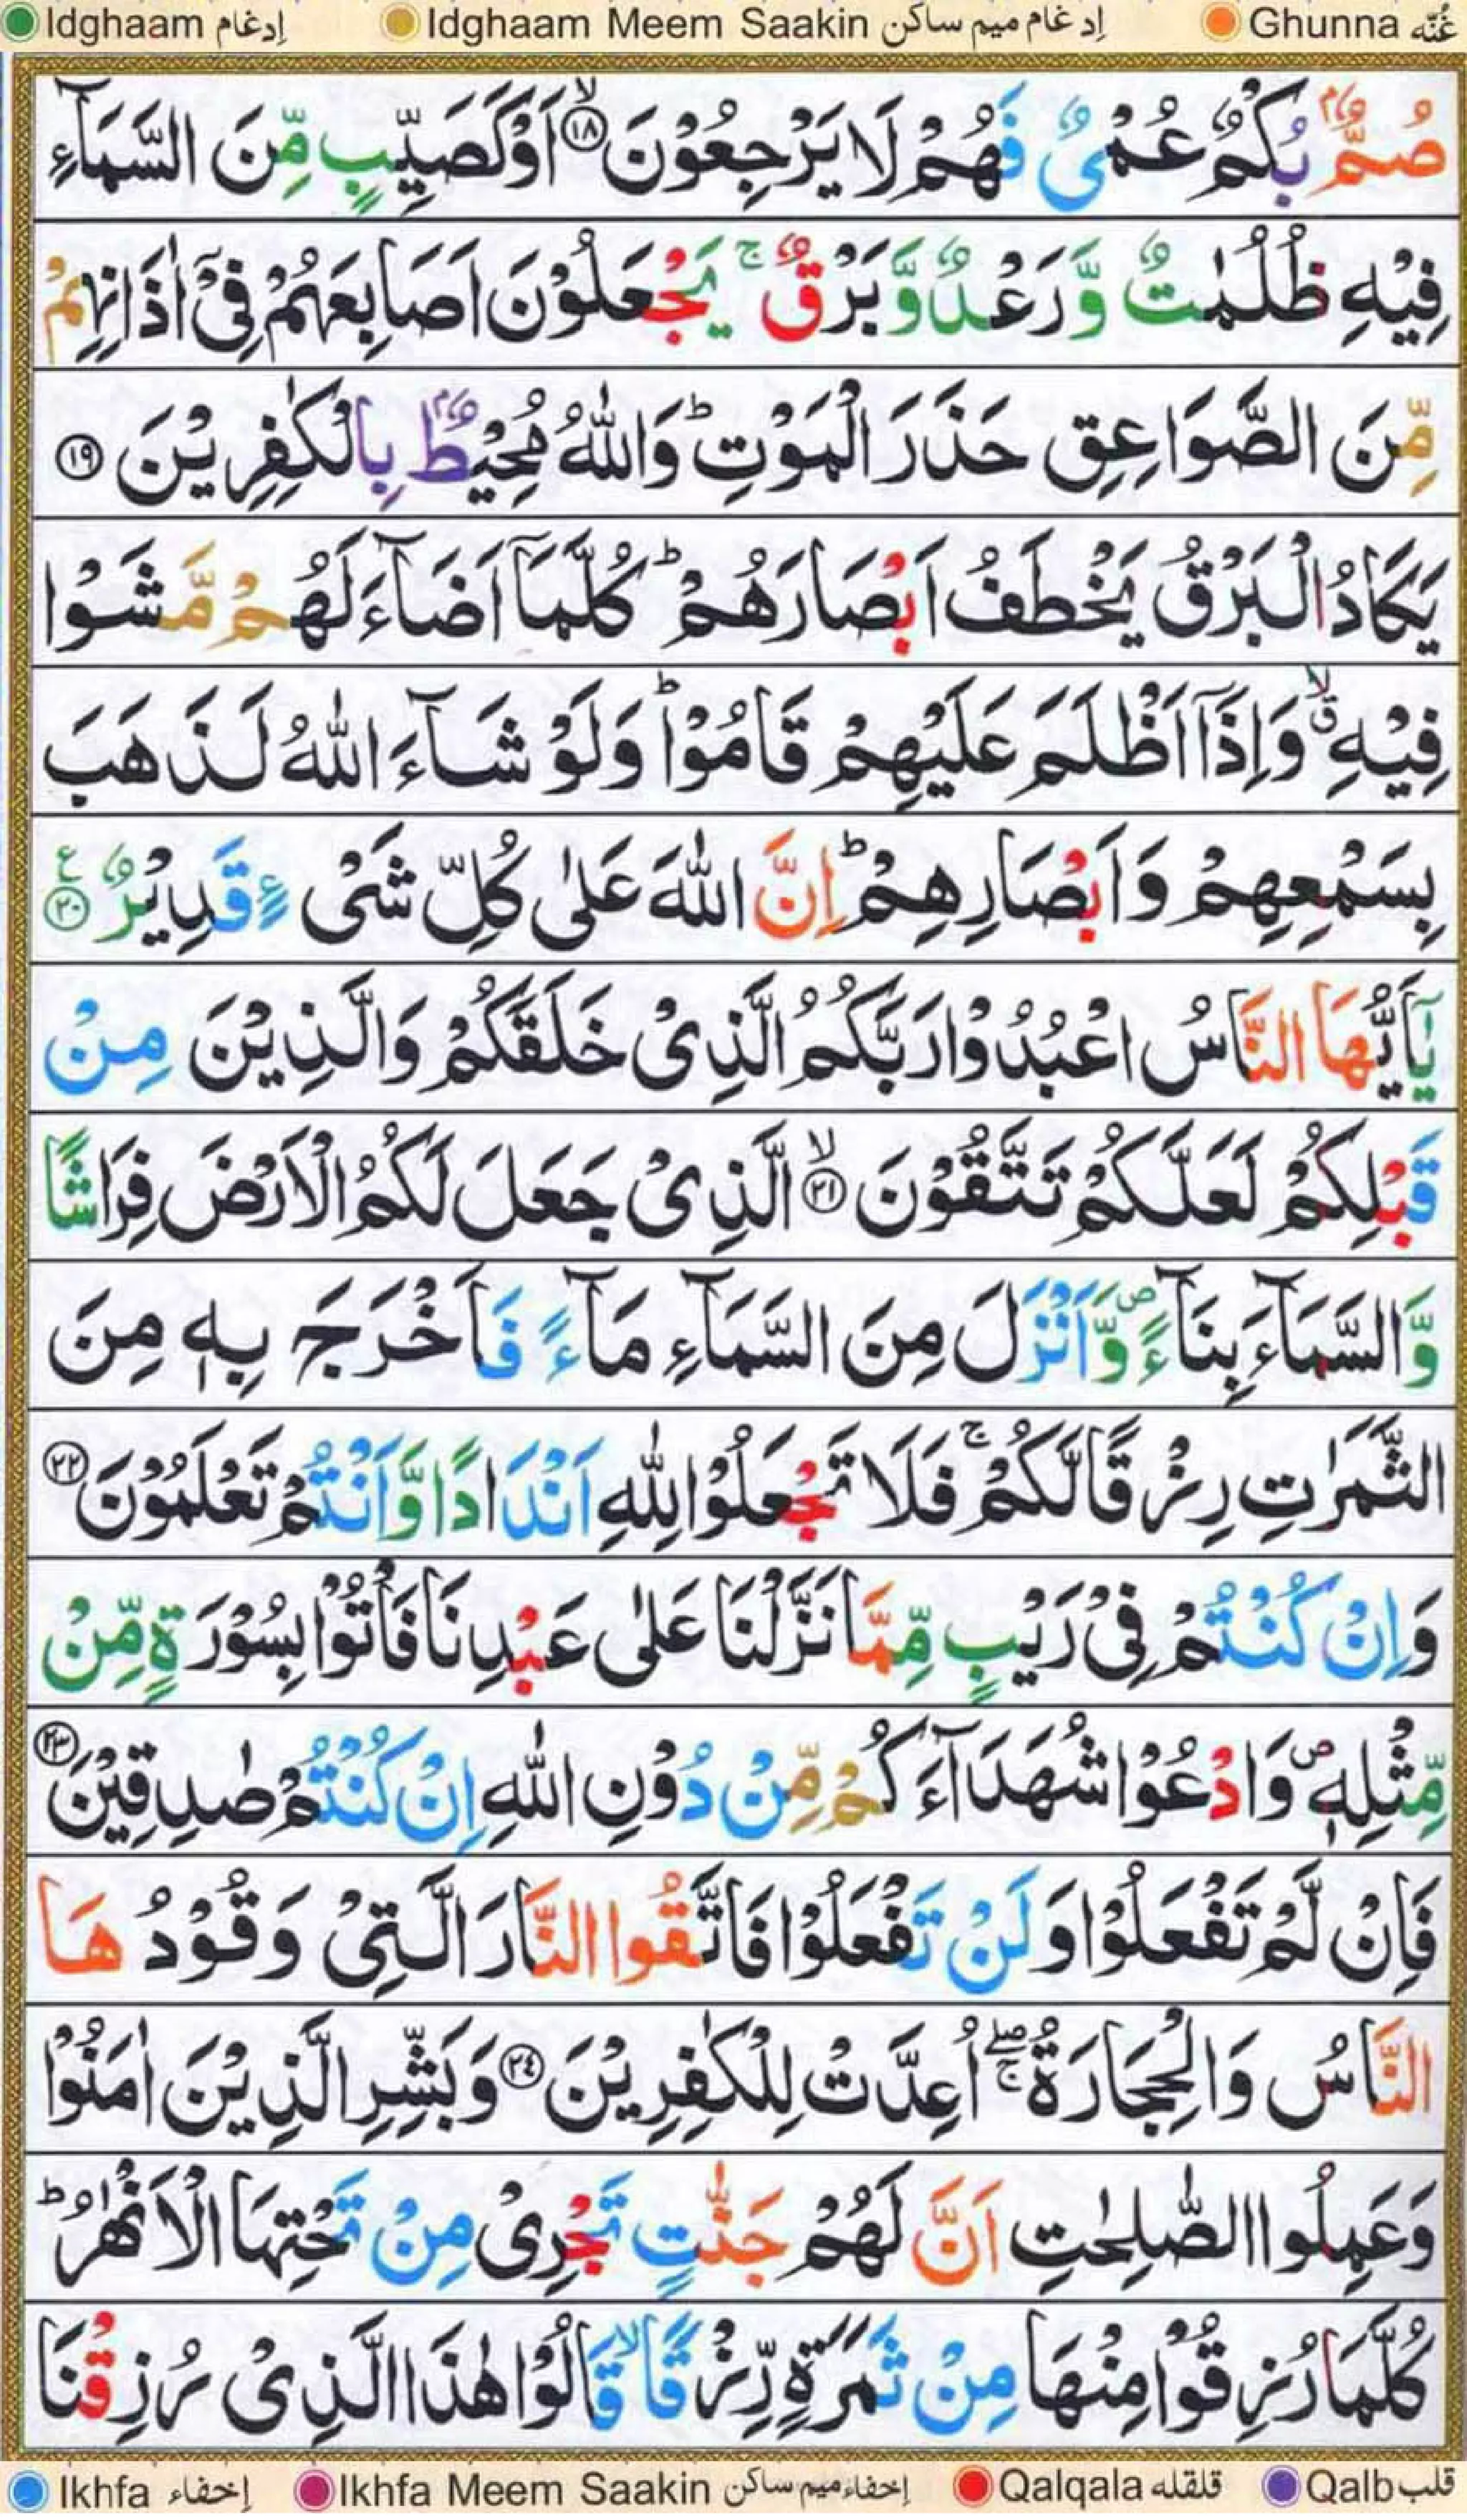 Idghaam إدغام Idghaam Meem Saakin إدغام ميم ساكن Ghunna غُنّه
صُمٌّۢ بُكْمٌ عُمْیٌ فَهُمْ لَا یَرْجِعُوْنَ ۙ﴿۱۸﴾ اَوْ كَصَیِّبٍ مِّنَ السَّمَآءِ
فِیْهِ ظُلُمٰتٌ وَّرَعْدٌ وَّبَرْقٌ ۚ یَجْعَلُوْنَ اَصَابِعَهُمْ فِیْۤ اٰذَانِهِمْ
مِّنَ الصَّوَاعِقِ حَذَرَ الْمَوْتِ ؕ وَاللّٰهُ مُحِیْطٌۢ بِالْكٰفِرِیْنَ ﴿۱۹﴾
یَكَادُ الْبَرْقُ یَخْطَفُ اَبْصَارَهُمْ ؕ كُلَّمَاۤ اَضَآءَ لَهُمْ مَّشَوْا
فِیْهِ ۙۗ وَاِذَاۤ اَظْلَمَ عَلَیْهِمْ قَامُوْا ؕ وَلَوْ شَآءَ اللّٰهُ لَذَهَبَ
بِسَمْعِهِمْ وَاَبْصَارِهِمْ ؕ اِنَّ اللّٰهَ عَلٰی كُلِّ شَیْءٍ قَدِیْرٌ ﴿۲۰﴾ ع
یٰۤاَیُّهَا النَّاسُ اعْبُدُوْا رَبَّكُمُ الَّذِیْ خَلَقَكُمْ وَالَّذِیْنَ مِنْ
قَبْلِكُمْ لَعَلَّكُمْ تَتَّقُوْنَ ۙ﴿۲۱﴾ الَّذِیْ جَعَلَ لَكُمُ الْاَرْضَ فِرَاشًا
وَّالسَّمَآءَ بِنَآءً ۪ وَّاَنْزَلَ مِنَ السَّمَآءِ مَآءً فَاَخْرَجَ بِهٖ مِنَ
الثَّمَرٰتِ رِزْقًا لَّكُمْ ۚ فَلَا تَجْعَلُوْا لِلّٰهِ اَنْدَادًا وَّاَنْتُمْ تَعْلَمُوْنَ ﴿۲۲﴾
وَاِنْ كُنْتُمْ فِیْ رَیْبٍ مِّمَّا نَزَّلْنَا عَلٰی عَبْدِنَا فَاْتُوْا بِسُوْرَةٍ مِّنْ
مِّثْلِهٖ ۪ وَادْعُوْا شُهَدَآءَكُمْ مِّنْ دُوْنِ اللّٰهِ اِنْ كُنْتُمْ صٰدِقِیْنَ ﴿۲۳﴾
فَاِنْ لَّمْ تَفْعَلُوْا وَلَنْ تَفْعَلُوْا فَاتَّقُوا النَّارَ الَّتِیْ وَقُوْدُهَا
النَّاسُ وَالْحِجَارَةُ ۖۚ اُعِدَّتْ لِلْكٰفِرِیْنَ ﴿۲۴﴾ وَبَشِّرِ الَّذِیْنَ اٰمَنُوْا
وَعَمِلُوا الصّٰلِحٰتِ اَنَّ لَهُمْ جَنّٰتٍ تَجْرِیْ مِنْ تَحْتِهَا الْاَنْهٰرُ ؕ
كُلَّمَا رُزِقُوْا مِنْهَا مِنْ ثَمَرَةٍ رِّزْقًا ۙ قَالُوْا هٰذَا الَّذِیْ رُزِقْنَا
Ikhfa إخفاء Ikhfa Meem Saakin إخفاء ميم ساكن Qalqala قلقله Qalb قلب